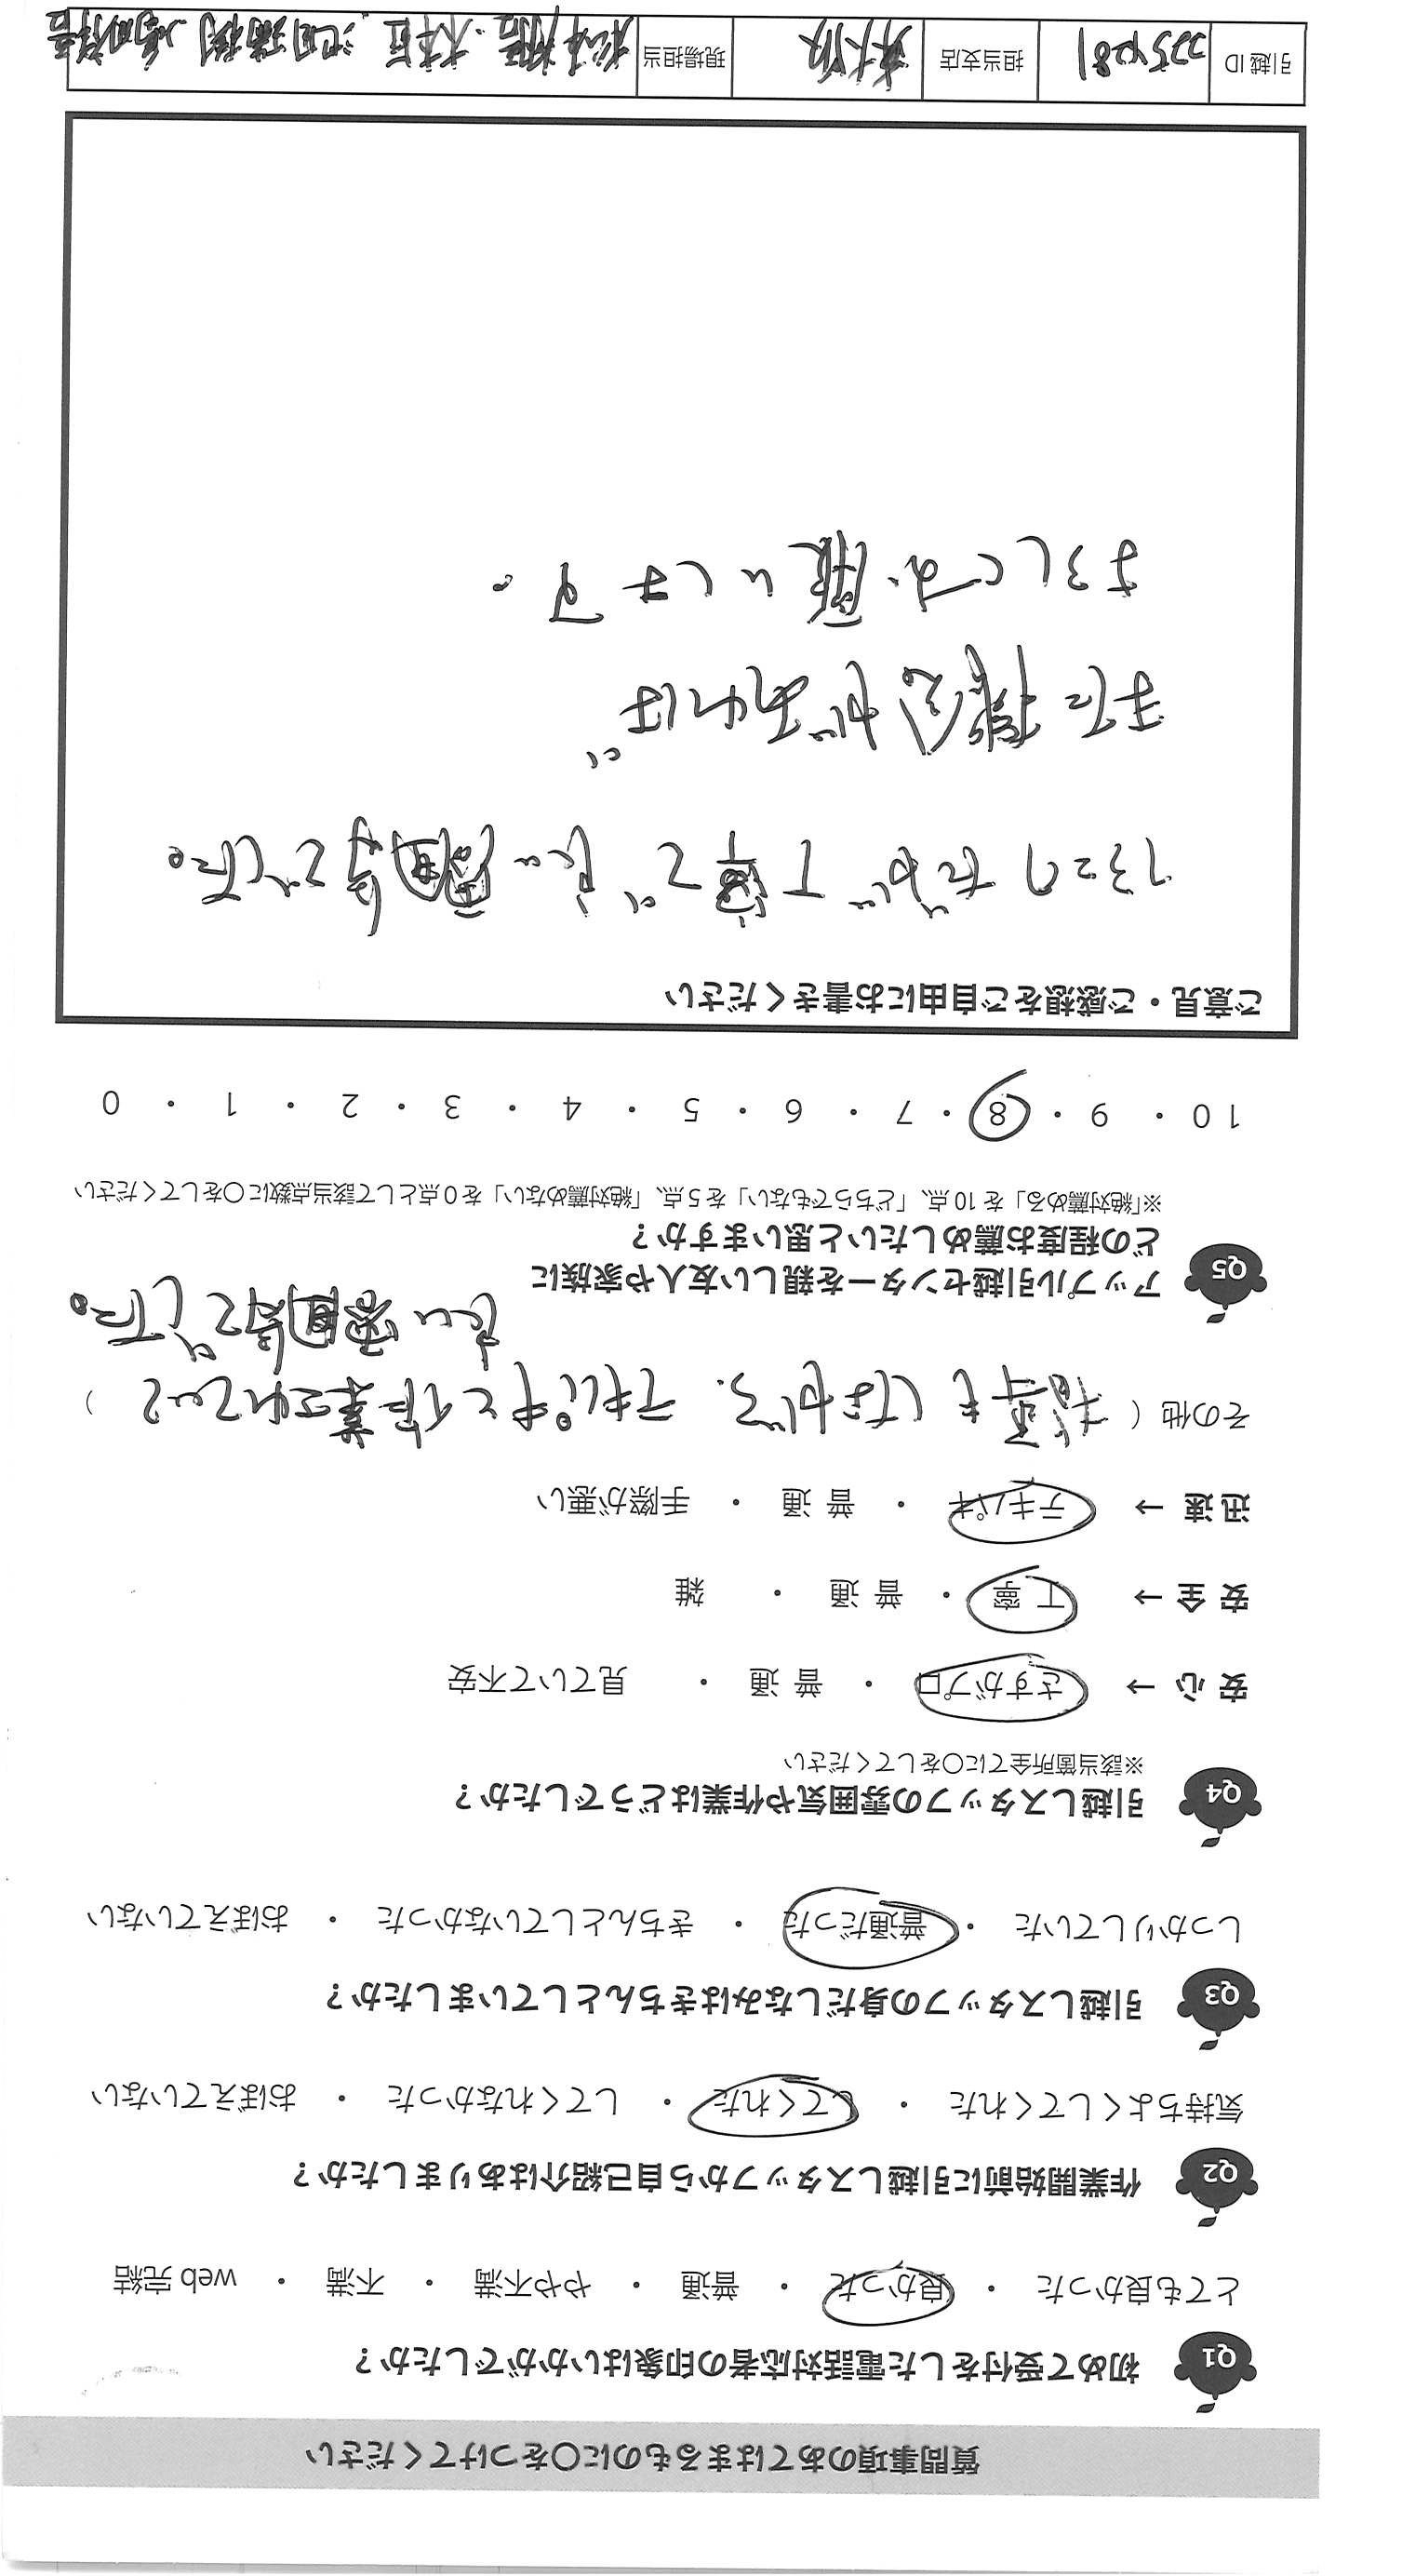 質問事項のあてはまるものに○をつけてください
Q1 初めて受付をした電話対応者の印象はいかがでしたか？
とても良かった ・ 良かった ・ 普通 ・ やや不満 ・ 不満 ・ web 完結
Q2 作業開始前に引越しスタッフから自己紹介はありましたか？
気持ちよくしてくれた ・ してくれた ・ してくれなかった ・ おぼえていない
Q3 引越しスタッフの身だしなみはきちんとしていましたか？
しっかりしていた ・ 普通だった ・ きちんとしていなかった ・ おぼえていない
Q4 引越しスタッフの雰囲気や作業はどうでしたか？
※該当箇所全てに○をしてください
安 心 → さすがプロ ・ 普 通 ・ 見ていて不安
安 全 → 丁 寧 ・ 普 通 ・ 雑
迅 速 → テキパキ ・ 普 通 ・ 手際が悪い
その他（ 指導もしながら、テキパキと作業されていて ）
良い雰囲気でした。
Q5 アップル引越センターを親しい友人や家族に
どの程度お薦めしたいと思いますか？
※「絶対薦める」を 10 点、「どちらでもない」を 5 点、「絶対薦めない」を 0 点として該当点数に○をしてください
10 ・ 9 ・ 8 ・ 7 ・ 6 ・ 5 ・ 4 ・ 3 ・ 2 ・ 1 ・ 0
ご意見・ご感想をご自由にお書きください
丁寧で良い雰囲気でした。
また機会があれば
よろしくお願いします。
引越 ID 担当支店 東大阪 現場担当